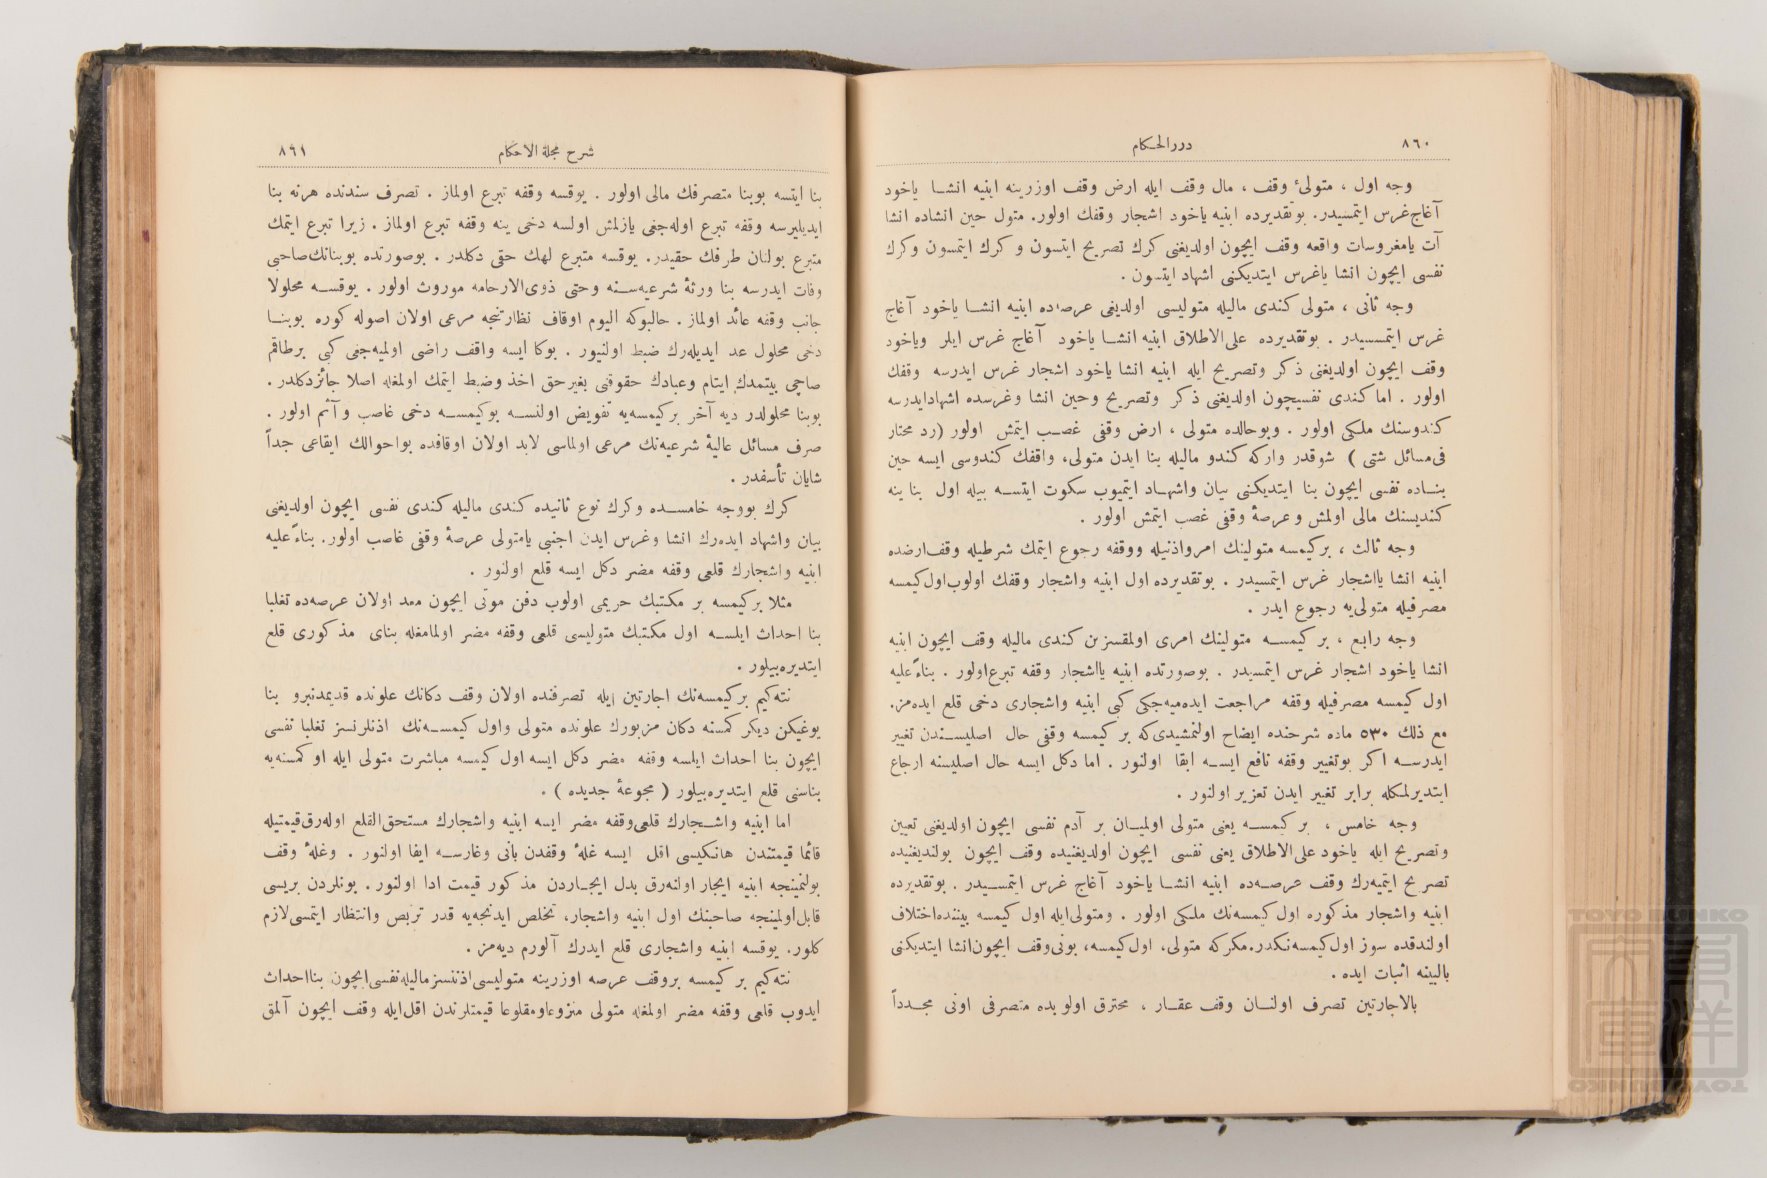 ٨٦٠
دررالحكام
وجه اول ، متولئ وقف ، مال وقف ايله ارض وقف اوزرينه ابنيه انشا ياخود
آغاج غرس ايتمسيدر. بوتقديرده ابنيه ياخود اشجار وقفك اولور. متول حين انشاده انشا
آت يامغروسات واقعه وقف ايچون اولديغنى كرك تصريح ايتسون و كرك ايتمسون وكرك
نفسى ايچون انشا ياغرس ايتديكنى اشهاد ايتسون .
وجه ثانى ، متولى كندى ماليله متوليسى اولديغى عرصه‌ده ابنيه انشا ياخود آغاج
غرس ايتمسيدر . بوتقديرده على‌الاطلاق ابنيه انشا ياخود آغاج غرس ايلر وياخود
وقف ايچون اولديغنى ذكر وتصريح ايله ابنيه انشا ياخود اشجار غرس ايدرسه وقفك
اولور . اما كندى نفسيچون اولديغنى ذكر وتصريح وحين انشا وغرسده اشهادايدرسه
كندوسنك ملكى اولور . وبوحالده متولى ، ارض وقفى غصب ايتمش اولور (رد محتار
فى‌مسائل شتى ) شوقدر واركه كندو ماليله بنا ايدن متولى، واقفك كندوسى ايسه حين
بناده نفسى ايچون بنا ايتديكنى بيان واشهاد ايتميوب سكوت ايتسه بيله اول بنا ينه
كنديسنك مالى اولمش و عرصهٔ وقفى غصب ايتمش اولور .
وجه ثالث ، بركيمسه متولينك امرواذنيله ووقفه رجوع ايتمك شرطيله وقف‌ارضده
ابنيه انشا يااشجار غرس ايتمسيدر . بوتقديرده اول ابنيه واشجار وقفك اولوب‌اول‌كيمسه
مصرفيله متولى‌يه رجوع ايدر .
وجه رابع ، بر كيمسه متولينك امرى اولمقسزين كندى ماليله وقف ايچون ابنيه
انشا ياخود اشجار غرس ايتمسيدر . بوصورتده ابنيه يااشجار وقفه تبرع‌اولور . بناءً‌عليه
اول كيمسه مصرفيله وقفه مراجعت ايده‌ميه‌جكى كبى ابنيه واشجارى دخى قلع ايده‌مز.
مع ذلك ٥٣٠ ماده شرحنده ايضاح اولنمشيدى‌كه بر كيمسه وقفى حال اصليسندن تغيير
ايدرسه اكر بوتغيير وقفه نافع ايسه ابقا اولنور . اما دكل ايسه حال اصليسنه ارجاع
ايتديرلمكله برابر تغيير ايدن تعزير اولنور .
وجه خامس ، بر كيمسه يعنى متولى اولميان بر آدم نفسى ايچون اولديغنى تعيين
وتصريح ايله ياخود على‌الاطلاق يعنى نفسى ايچون اولديغنيده وقف ايچون بولنديغنيده
تصريح ايتميه‌رك وقف عرصه‌ده ابنيه انشا ياخود آغاج غرس ايتمسيدر . بوتقديرده
ابنيه واشجار مذكوره اول كيمسه‌نك ملكى اولور . ومتولى‌ايله اول كيمسه بيننده‌اختلاف
اولندقده سوز اول‌كيمسه‌نكدر.مكركه متولى، اول‌كيمسه، بونى‌وقف ايچون‌انشا ايتديكنى
بالبينه اثبات ايده .
بالاجارتين تصرف اولنان وقف عقار ، محترق اولوبده متصرفى اونى مجدداً
شرح مجلة الاحكام
٨٦١
بنا ايتسه بوبنا متصرفك مالى اولور . يوقسه وقفه تبرع اولماز . تصرف سندنده هرنه بنا
ايديليرسه وقفه تبرع اوله‌جغى يازلمش اولسه دخى ينه وقفه تبرع اولماز . زيرا تبرع ايتمك
متبرع بولنان طرفك حقيدر. يوقسه متبرع لهك حقى دكلدر . بوصورتده بوبنانك‌صاحبى
وفات ايدرسه بنا ورثهٔ شرعيه‌سنه وحتى ذوى‌الارحامه موروث اولور . يوقسه محلولا
جانب وقفه عائد اولماز . حالبوكه اليوم اوقاف نظارتنجه مرعى اولان اصوله كوره بوبنا
دخى محلول عد ايديله‌رك ضبط اولنيور . بوكا ايسه واقف راضى اولميه‌جغى كبى برطاقم
صاچى بيتمدك ايتام وعبادك حقوقنى بغيرحق اخذ وضبط ايتمك اولمغله اصلا جائزدكلدر .
بوبنا محلولدر ديه آخر بركيمسه‌يه تفويض اولنسه بوكيمسه دخى غاصب و آثم اولور .
صرف مسائل عاليهٔ شرعيه‌نك مرعى اولماسى لابد اولان اوقافده بواحوالك ايقاعى جداً
شايان تأسفدر .
كرك بووجه خامسده وكرك نوع ثانيده كندى ماليله كندى نفسى ايچون اولديغنى
بيان واشهاد ايده‌رك انشا وغرس ايدن اجنبى يامتولى عرصهٔ وقفى غاصب اولور. بناءً عليه
ابنيه واشجارك قلعى وقفه مضر دكل ايسه قلع اولنور .
مثلا بركيمسه بر مكتبك حريمى اولوب دفن موتى ايچون معد اولان عرصه‌ده تغلبا
بنا احداث ايلسه اول مكتبك متوليسى قلعى وقفه مضر اولمامغله بناى مذكورى قلع
ايتديره‌بيلور .
نته‌كيم بركيمسه‌نك اجارتين ايله تصرفنده اولان وقف دكانك علونده قديمدنبرو بنا
يوغيكن ديكر كمسنه دكان مزبورك علونده متولى واول كيمسه‌نك اذنلرنسز تغلبا نفسى
ايچون بنا احداث ايلسه وقفه مضر دكل ايسه اول كيمسه مباشرت متولى ايله او كمسنه‌يه
بناسنى قلع ايتديره‌بيلور ( مجموعهٔ جديده ) .
اما ابنيه واشجارك قلعى‌وقفه مضر ايسه ابنيه واشجارك مستحق‌القلع اوله‌رق‌قيمتيله
قائما قيمتندن هانكيسى اقل ايسه غلهٔ وقفدن بانى وغارسه ايفا اولنور . وغلهٔ وقف
بولنمينجه ابنيه ايجار اولنه‌رق بدل ايجاردن مذكور قيمت ادا اولنور . بونلردن بريسى
قابل‌اولمينجه صاحبنك اول ابنيه واشجار، تخلص ايدنجه‌يه قدر تربص وانتظار ايتمسى‌لازم
كلور. يوقسه ابنيه واشجارى قلع ايدرك آلورم ديه‌مز.
نته‌كيم بر كيمسه بروقف عرصه اوزرينه متوليسى‌اذننسز ماليله‌نفسى‌ايچون بنااحداث
ايدوب قلعى وقفه مضر اولمغله متولى منزوعاومقلوعا قيمتلرندن اقل‌ايله وقف ايچون آلمق
TOYO BUNKO
東洋文庫
TOYO BUNKO